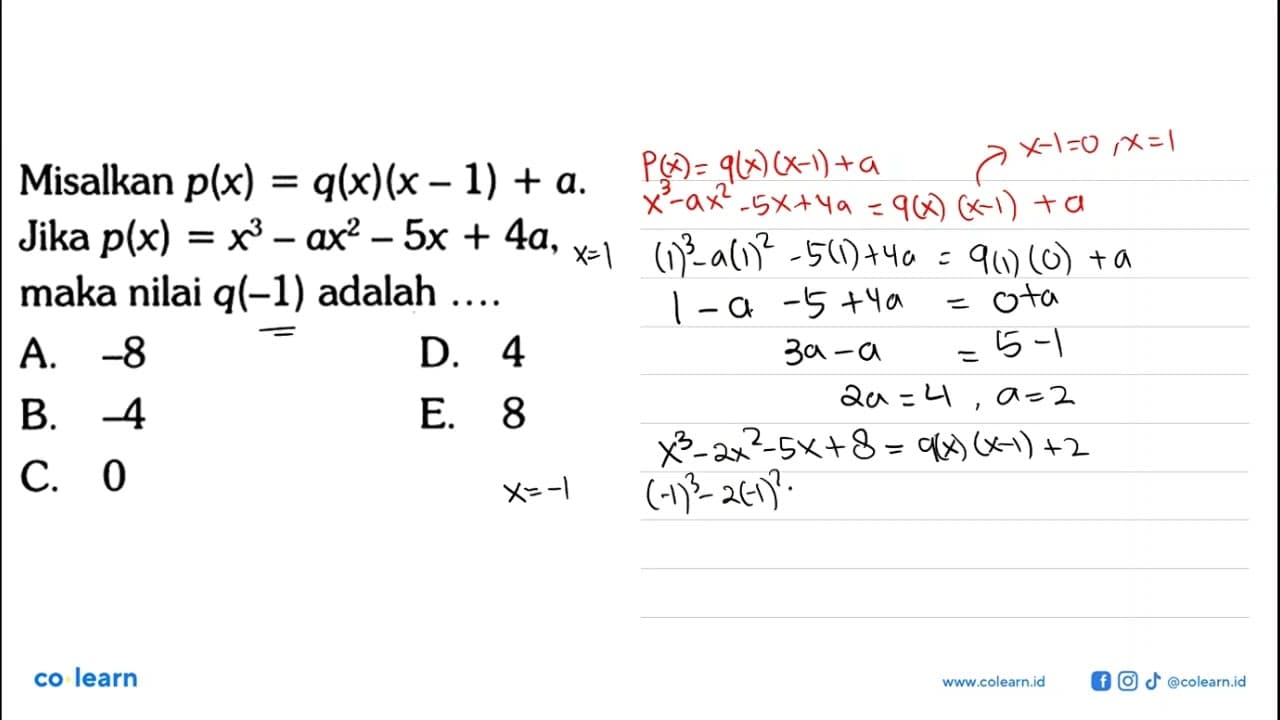 Misalkan p(x) = q(x)(x – 1) + a.
Jika p(x) = x³ – ax² – 5x + 4a,
maka nilai q(–1) adalah ....
A. –8
B. –4
C. 0
D. 4
E. 8
P(x) = q(x)(x-1)+a
→ x-1=0, x=1
x³-ax²-5x+4a = q(x)(x-1)+a
x=1 (1)³-a(1)²-5(1)+4a = q(1)(0)+a
1-a-5+4a = 0+a
3a-a = 5-1
2a=4, a=2
x³-2x²-5x+8 = q(x)(x-1)+2
x=-1 (-1)³-2(-1)².
co learn
www.colearn.id
@colearn.id